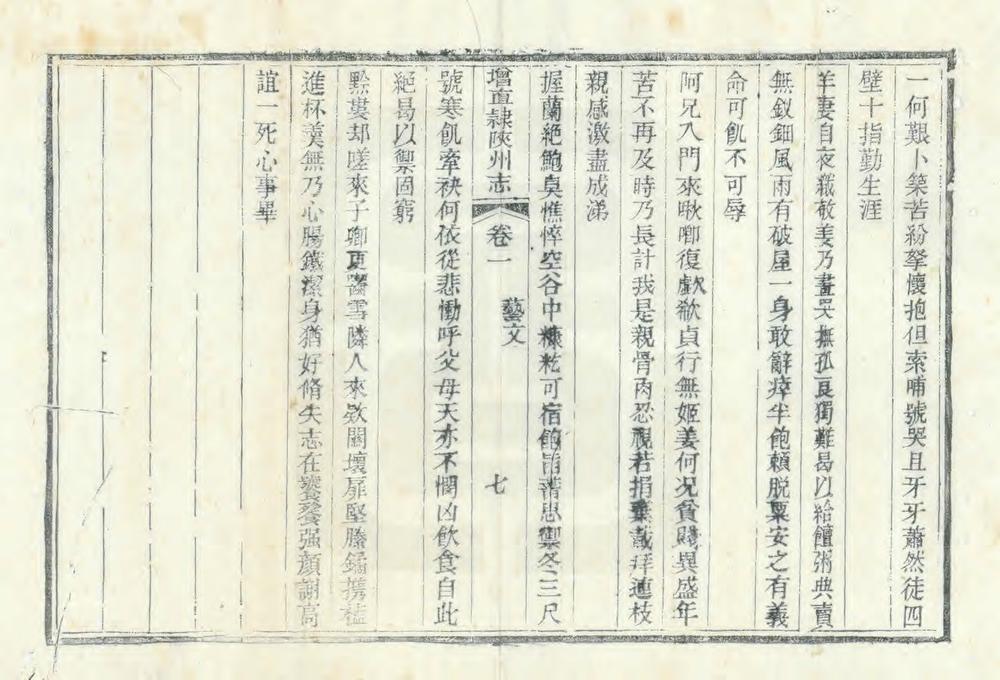 一何艱卜築苦紛拏懷抱但索哺號哭且牙牙蕭然徒四
壁十指勤生涯
羊妻自夜織敬姜乃晝哭撫孤良獨難曷以給饘粥典賣
無釵鈿風雨有破屋一身敢辭瘁半飽賴脫粟安之有義
命可飢不可辱
阿兄入門來啾唧復歔欷貞行無姬姜何况貧賤異盛年
苦不再及時乃長計我是親骨肉忍視若捐棄感拜連枝
親感激盡成涕
握蘭絕鮑臭憔悴空谷中糠籺可宿飽旨蓄思禦冬三尺
增直隸陜州志
卷一
藝文
七
號寒飢牽袂何依從悲慟呼父母天亦不憫凶飲食自此
絕曷以禦固窮
黔婁却嗟來子卿更齧雪隣人來欵關壞扉堅縢鐍携榼
進杯羹無乃心腸鐵潔身猶好脩失志在饕餮强顏謝高
誼一死心事畢